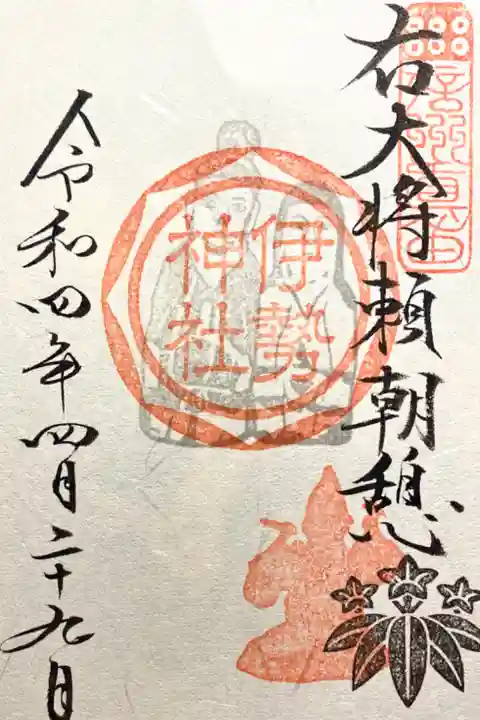 右大将頼朝憩
信州真田
伊勢
神社
令和四年四月二十九日